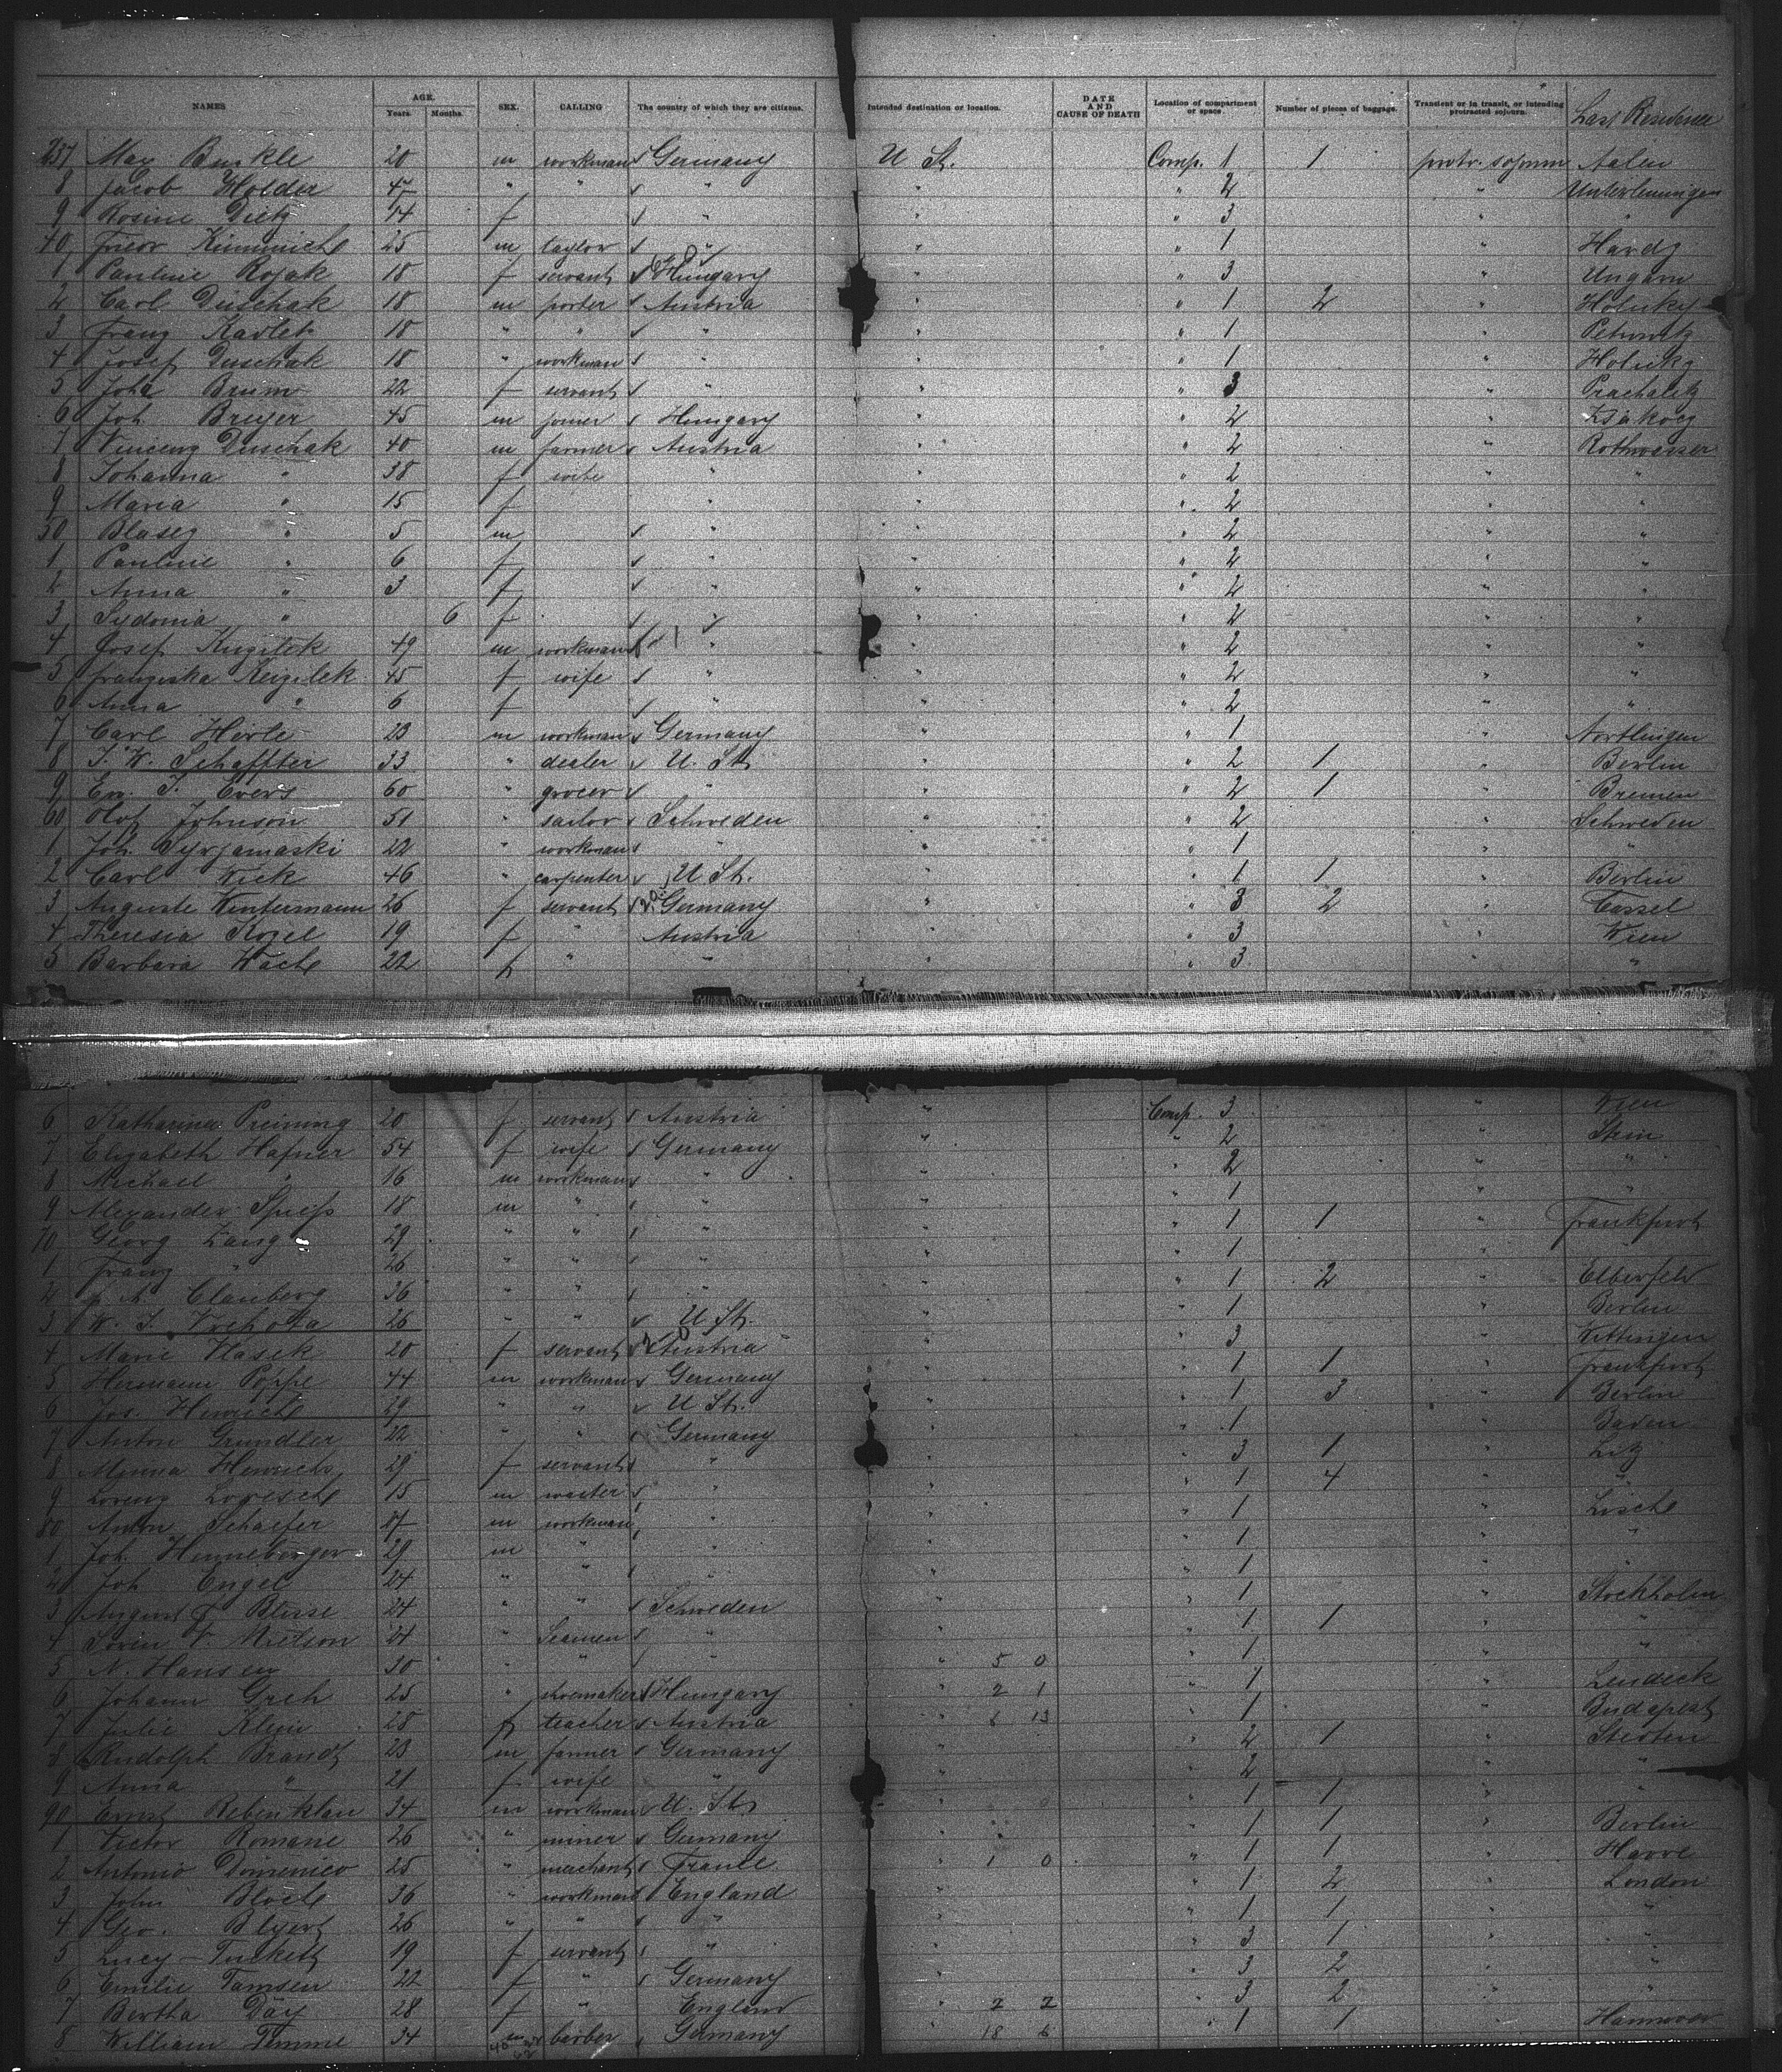 NAMES AGE. Years. Months. SEX. CALLING The country of which they are citizens. Intended destination or location. DATE AND CAUSE OF DEATH Location of compartment or space. Number of pieces of baggage. Transient or in transit, or intending protracted sojourn. Last Residence
237 Max Burkle 20 m workman Germany U St. Comp. 1 1 protr. sojourn Aalen
8 Jacob Holder 47 " " " " " 2 " Unterlenningen
9 Rosine Dietz 14 f " " " 3 " "
40 Friedr Kimmich 25 m taylor " " " 1 " Hardy
1 Pauline Rojak 18 f servant Hungary " " 3 " Ungarn
2 Carl Duschak 18 m porter Austria " " 1 2 " Holucky
3 Franz Karlet 18 " " " " " 1 " Petrwitz
4 Josef Duschak 18 " workman " " " 1 " Holucky
5 Brum 22 f servant " " " 3 " Prachalitz
6 Joh. Breyer 45 m Hungary " " 2 "
7 Vincenz Duschak 40 m farmer Austria " " 2 " Rothwasser
8 Johanna " 38 f wife " " " 2 " "
9 Maria " 15 f " " " 2 " "
50 Blasey " 5 m " " " 2 " "
1 Pauline " 6 f " " " 2 " "
2 Anna " 3 f " " " 2 " "
3 Sydonia " 6 f " " " 2 " "
4 Josef Kugilek 49 m workman " " " 2 " "
5 Franziska Keigilek 45 f wife " " " 2 " "
6 Anna " 6 f " " " 2 " "
7 Carl Hirle 23 m workman Germany " " 1 " Nortlingen
8 J. W. Schaffter 33 " dealer U. St. " " 2 1 " Berlin
9 En. J. Evers 60 " grocer " " " 2 1 " Bremen
60 Olof Johnson 51 " sailor Schweden " " 2 " Schweden
1 Joh. Syrjamaski 22 " workman " " " 1 " "
2 Carl Wick 46 " carpenter U St. " " 1 1 " Berlin
3 Auguste Wintermann 26 f servant Germany " " 3 2 " Cassel
4 Theresia Kozel 19 f " Austria " " 3 " Wien
5 Barbara Wach 22 f " " " " 3 " "
6 Katharina Preining 20 f servant Austria " Comp. 3 " Wien
7 Elizabeth Hafner 54 f wife Germany " " 2 " Stein
8 Michael " 16 m workman " " " 2 " "
9 Alexander Spiess 18 m " " " " 1 " "
70 Georg Zang 29 " " " " " 1 1 " Frankfurt
1 Franz " 26 " " " " " 1 " "
2 Clauberg 36 " " " " " 1 2 " Elberfeld
3 W. J. Vrchota 26 " " U St. " " 1 " Berlin
4 Marie Hasek 20 f servant Austria " " 3 " Wittingen
5 Hermann Poppe 44 m workman Germany " " 1 1 " Frankfurt
6 Jos. Hinrich 29 " " U St. " " 1 3 " Berlin
7 Anton Grundler 22 " " Germany " " 1 " Baden
8 Minna Henrichs 29 f servant " " " 3 1 " Litz
9 Lorenz Loresch 15 m waiter " " " 1 4 " "
80 Anton Schaefer 27 m workman " " " 1 " Lisch
1 Joh. Henneberger 29 m " " " " 1 " "
2 Joh Engel 24 " " " " " 1 " "
3 August F Blisse 24 " " Schweden " " 1 " Stockholm
4 Soren Nielson 24 " Seamen " " " 1 1 " "
5 N. Hansen 30 " " " " 5 0 " 1 " "
6 Johann Greh 25 " shoemaker Hungary " 2 1 " 1 " Lendeck
7 Julie Klein 28 f teacher Austria " 6 13 " 1 " Budapest
8 Rudolph Brandt 23 m farmer Germany " " 2 1 " Stedten
9 Anna " 21 f wife " " " 2 " "
90 Ernst Rebenklau 34 m workman U. St. " " 1 1 " "
1 Victor Romane 26 " miner Germany " " 1 1 " Berlin
2 Antonio Domenico 25 " merchant France " 1 0 " 1 1 " Havre
3 John Bloch 36 " workman England " " 1 2 " London
4 Geo. Blyert 26 " " " " " 1 1 " "
5 Lucy Tuckett 19 f servant " " " 3 1 " "
6 Emilie Tamsen 22 f " Germany " " 3 2 " "
7 Bertha Day 28 f " England " 2 2 " 3 2 " "
8 William Timme 34 m barber Germany 18 6 " 1 1 " Hannover